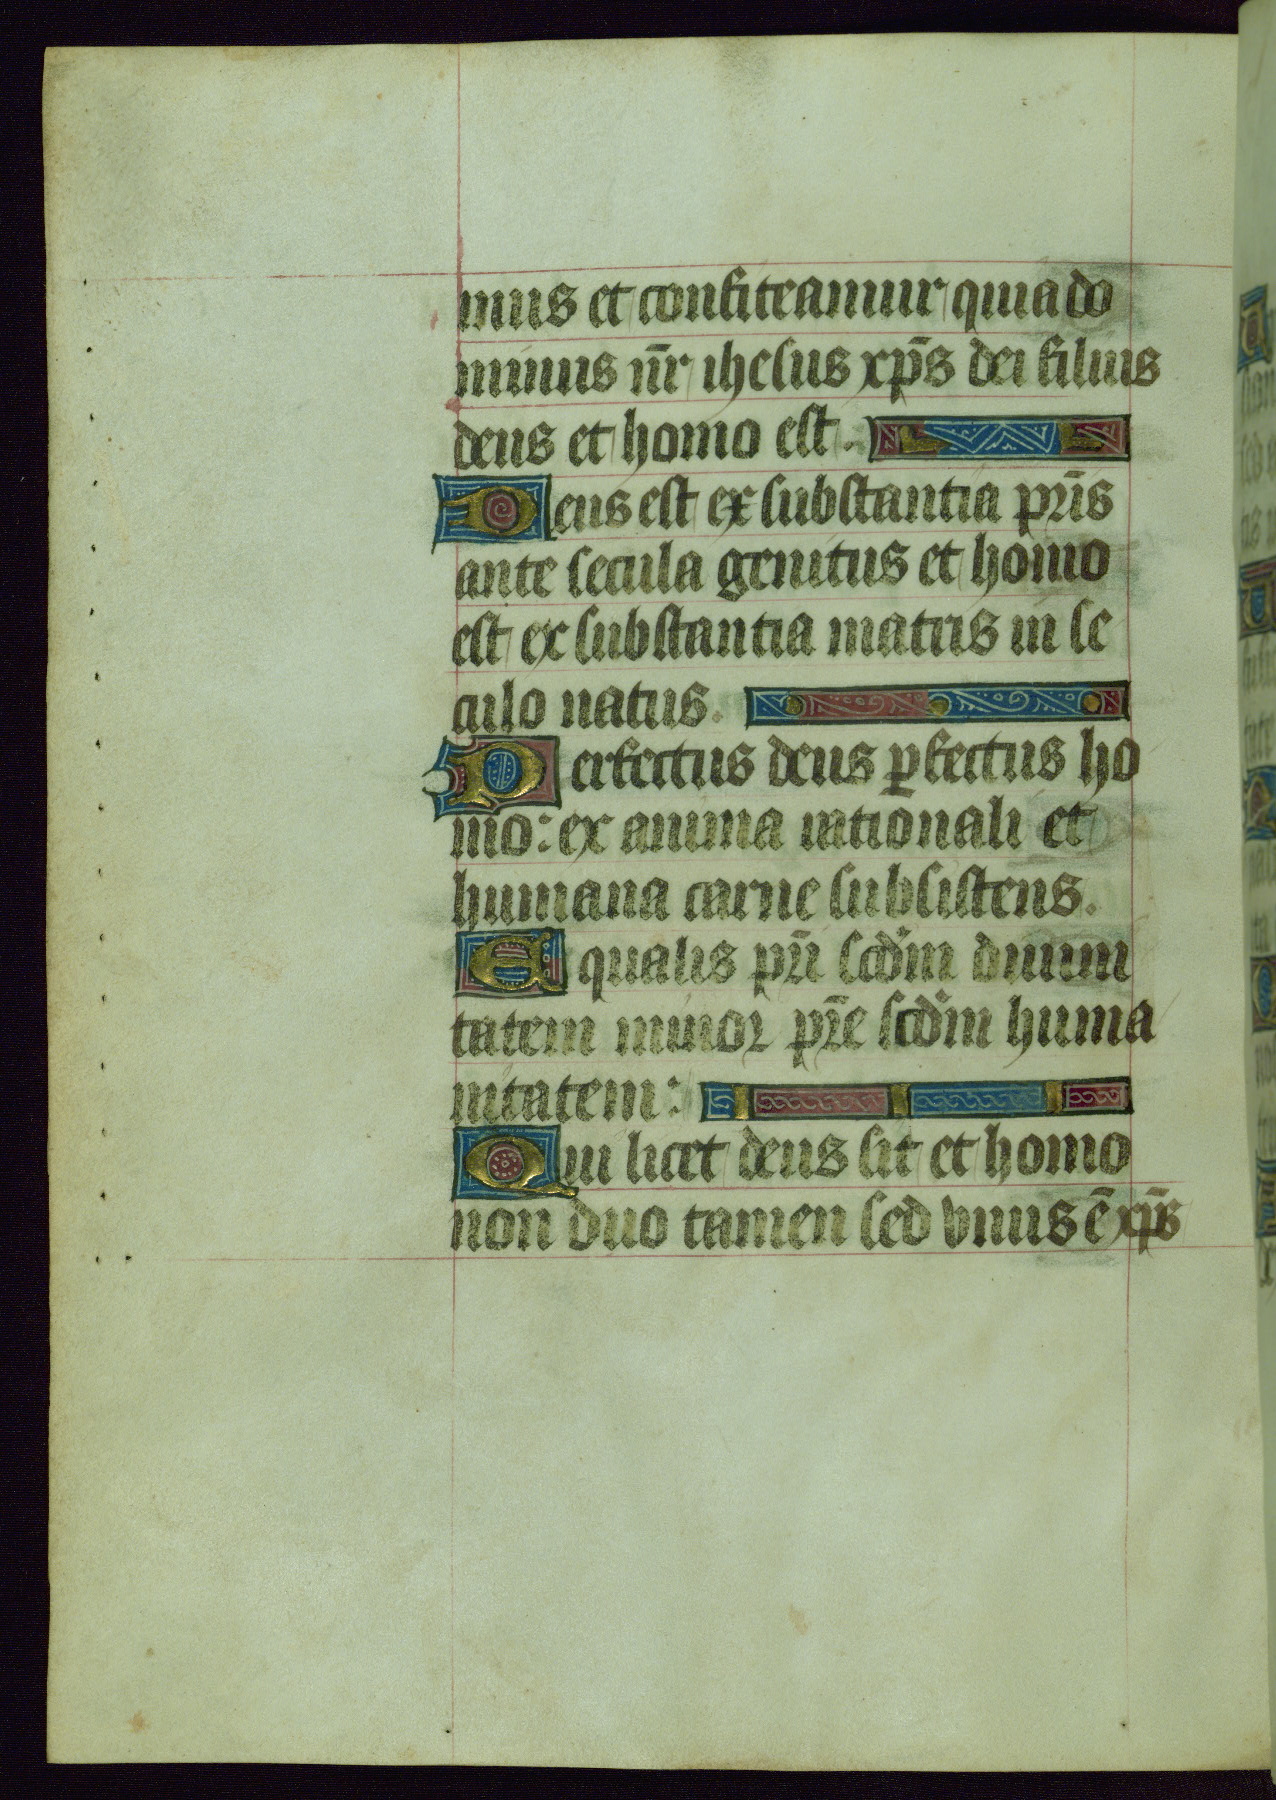 mus et confiteamur quia do
minus nr̄ ihesus xp̄s dei filius
deus et homo est.
Deus est ex substantia pr̄is
ante secula genitus et homo
est ex substantia matris in se
culo natus.
Perfectus deus ꝑfectus ho
mo: ex anima rationali et
humana carne subsistens.
Equalis pr̄i scd̄m diuini
tatem minor pr̄e scd̄m huma
nitatem:
Qui licet deus sit et homo
non duo tamen sed vnus ē xp̄s